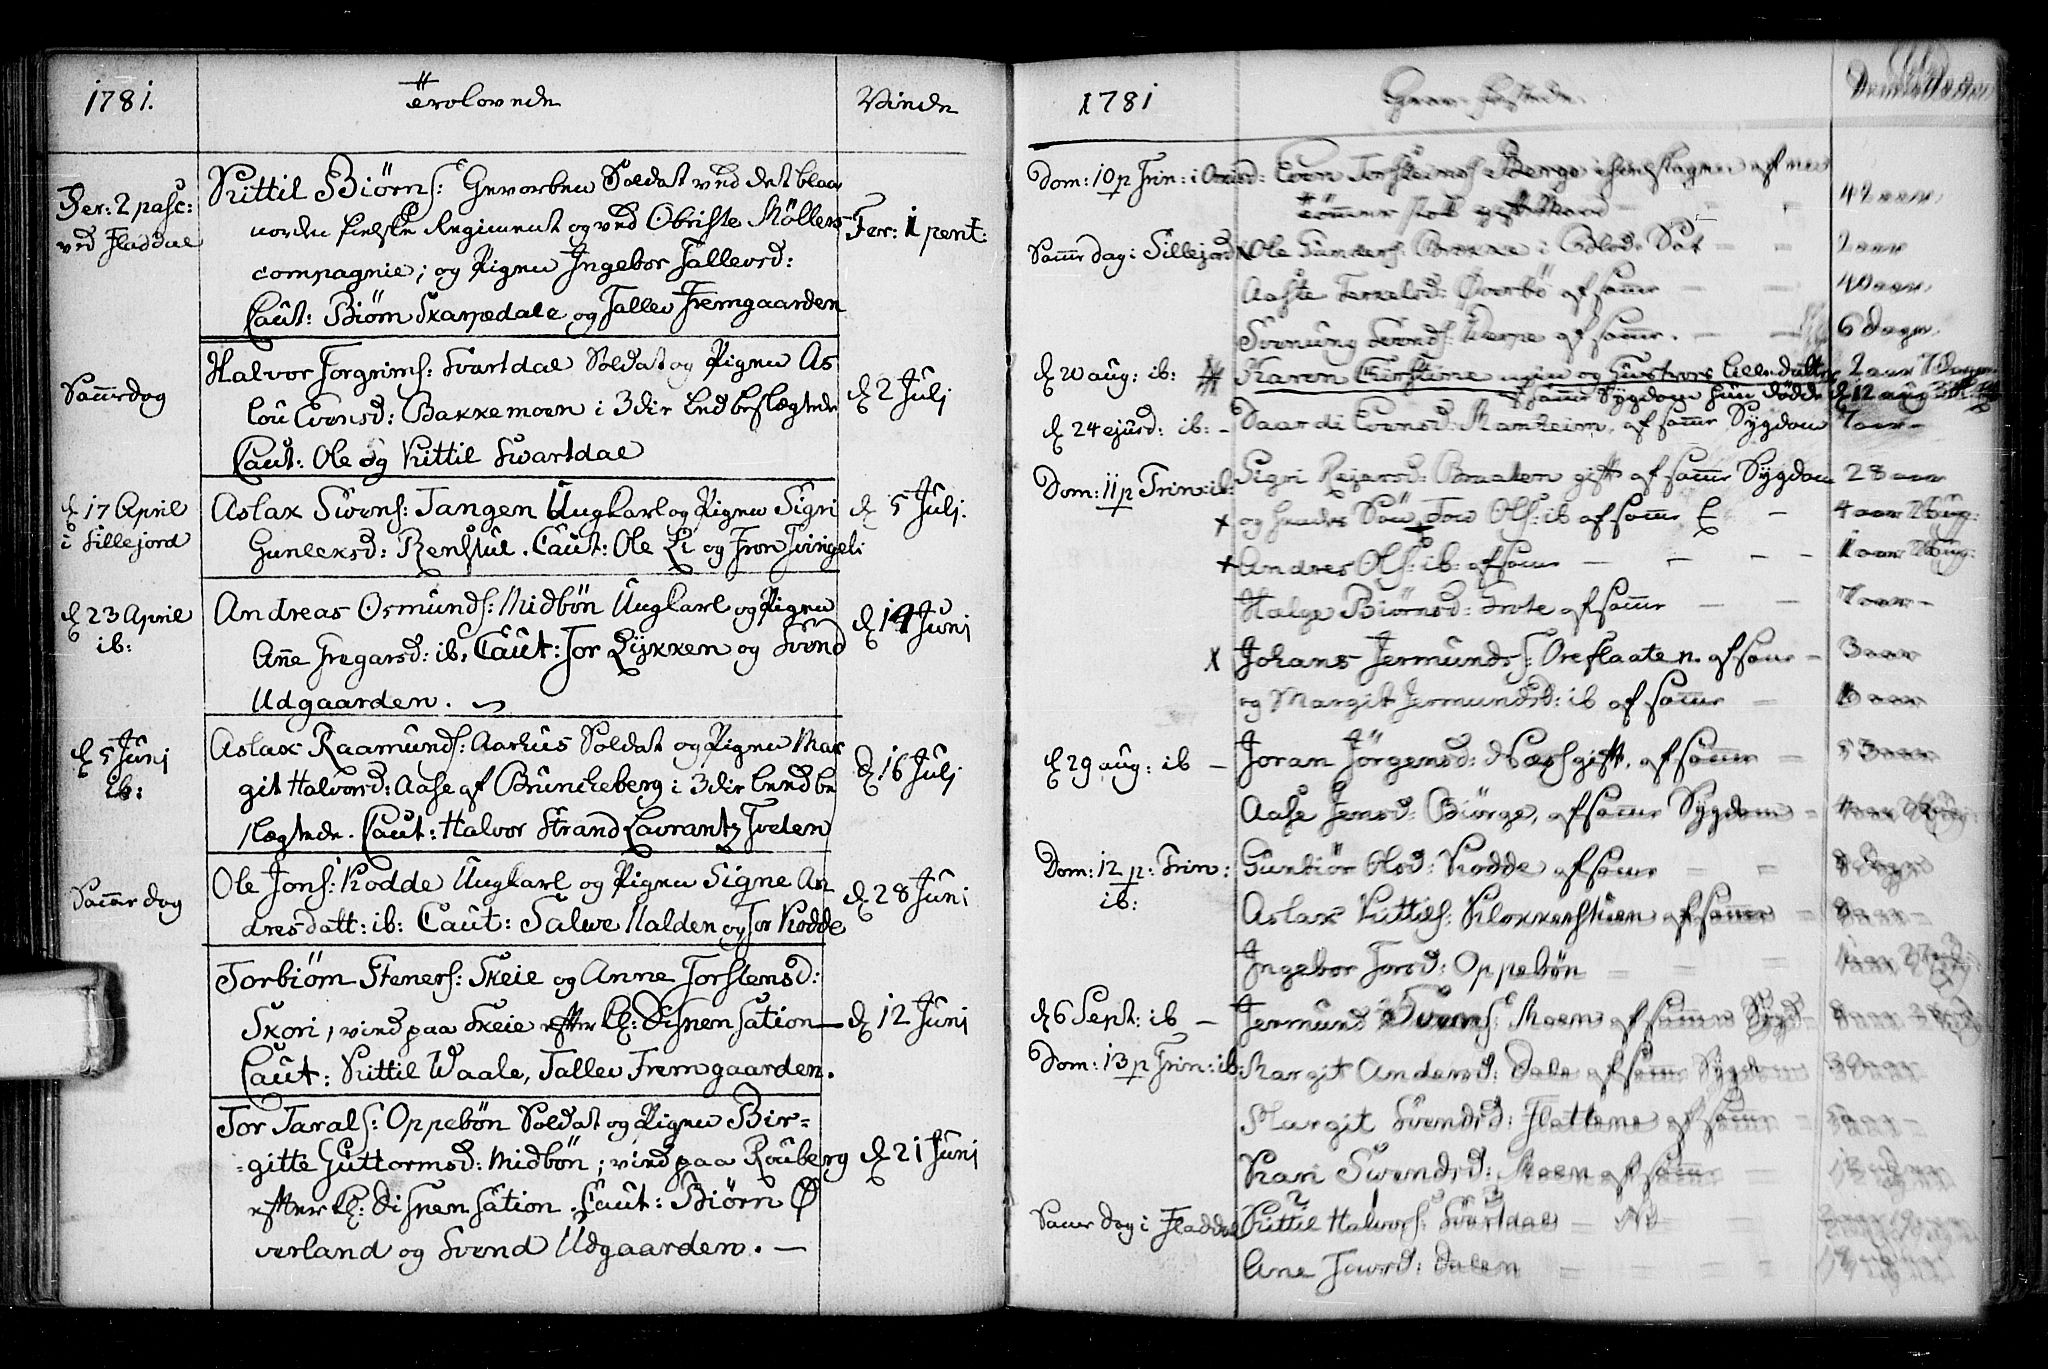 1781.
Trolovede
Viede
Fer: 2 pasc:
ved Fladdal
Kittil Biörns: Gevorben Soldat ved det blaa
norden fielske Regiment og ved Obriste Möllers
compagnie; og Pigen Ingebor Tallevsd:
Caut: Biörn Skarpedale og Tallev Fremgaarden
Fer: 1 pent:
Samme dag
Halvor Torgrims: Svartdal Soldat og Pigen As
lou Evensd: Bakkemoen i 3die Leed beslægtede
Caut: Ole og Kittil Svartdal
d 2 Julj
d 17 April
i Sillejord
Aslak Svens: Tangen Ungkarl og Pigen Sigri
Gunleksd: Renstul. Caut: Ole Li og Tron Tvingeli
d 5 Julj.
d 23 April
ib:
Andreas Osmunds: Midbön Ungkarl og Pigen
Anne Gregarsd: ib. Caut: Tor Lykken og Svend
Udgaarden.
d 14 Junj
d 5 Junj
ib:
Aslak Raamunds: Aarhus Soldat og Pigen Mar
git Halvorsd: Aase af Brunckeberg i 3die Leed be
slægtede. Caut: Halvor Strand Lavrantz Tveten
d 16 Julj
Samme dag
Ole Jons: Kodde Ungkarl og Pigen Signe An
dresdatt: ib: Caut: Salve Nalden og Tor Kodde
d 28 Junj
Torbiörn Steners: Skeie og Anne Torstensd:
Skori, vied paa Skeie efter kl: Dispensation
Caut: Kittil Waale, Tallev Fremgaarden.
d 12 Junj
Tor Tarals: Oppebön Soldat og Pigen Bir=
=gitte Guttormsd: Midbön; vied paa Rouberg
efter kl: Dispensation. Caut: Biörn Ö
verland og Svend Udgaarden. —
d 21 Junj
1781
Grav-fæstede
Dom: 10 p Trin: i
Even Torsteins: Berge ihielslagen af
tömmer stok gift Mand
42 aar
Samme dag i Sillejord
Ole Gunders: Brekke i Blod Sot
2 aar
Aaste Terkelsd: Överbö af samme
40 aar
Svenung Svends: Verpe af samme.
6 Dage.
d 20 aug: ib:
Karen Kirstine min og Hustrues lille dutter
2 aar 7 Dage
samme Sygdom hun dödde d 12 aug
d 24 ejusd: ib:
Evensd: Manheim, af samme Sygdom
7 aar
Dom: 11 p Trin: ib:
Sigri Rejersd: Braaten gift af samme Sygdom
28 aar
og hendes Sön Tov Ols: ib af samme
4 aar
Andres Ols: ib: af samme
1 aar
Halge Biörnsd: Grote af samme
7 aar
Johans Jermunds: Oreflaaten af samme
3 aar
og Margit Jermundsd: ib af samme
d 29 aug: ib
Joran Jörgensd: Næs gift, af samme
53 aar
Aase Jensd: Biörge, af samme Sygdom
Dom: 12 p: Trin:
ib:
Gunbiör Olsd: Kodde af samme
Aslak Kittils: Klokkerstuen af samme
Ingebor Torsd: Oppebön
d 6 Sept: ib
Jermund Svens: Moen af samme Sygd
Dom: 13 p Trin: ib:
Margit Andersd: Dale af samme Sygd
Margit Svendsd: Flattene af samme
Kari Svendsd: Moen af samme
Samme dag i Fladdal
Kittil Halvors: Svartdal
Ane Tovsd: Dalen